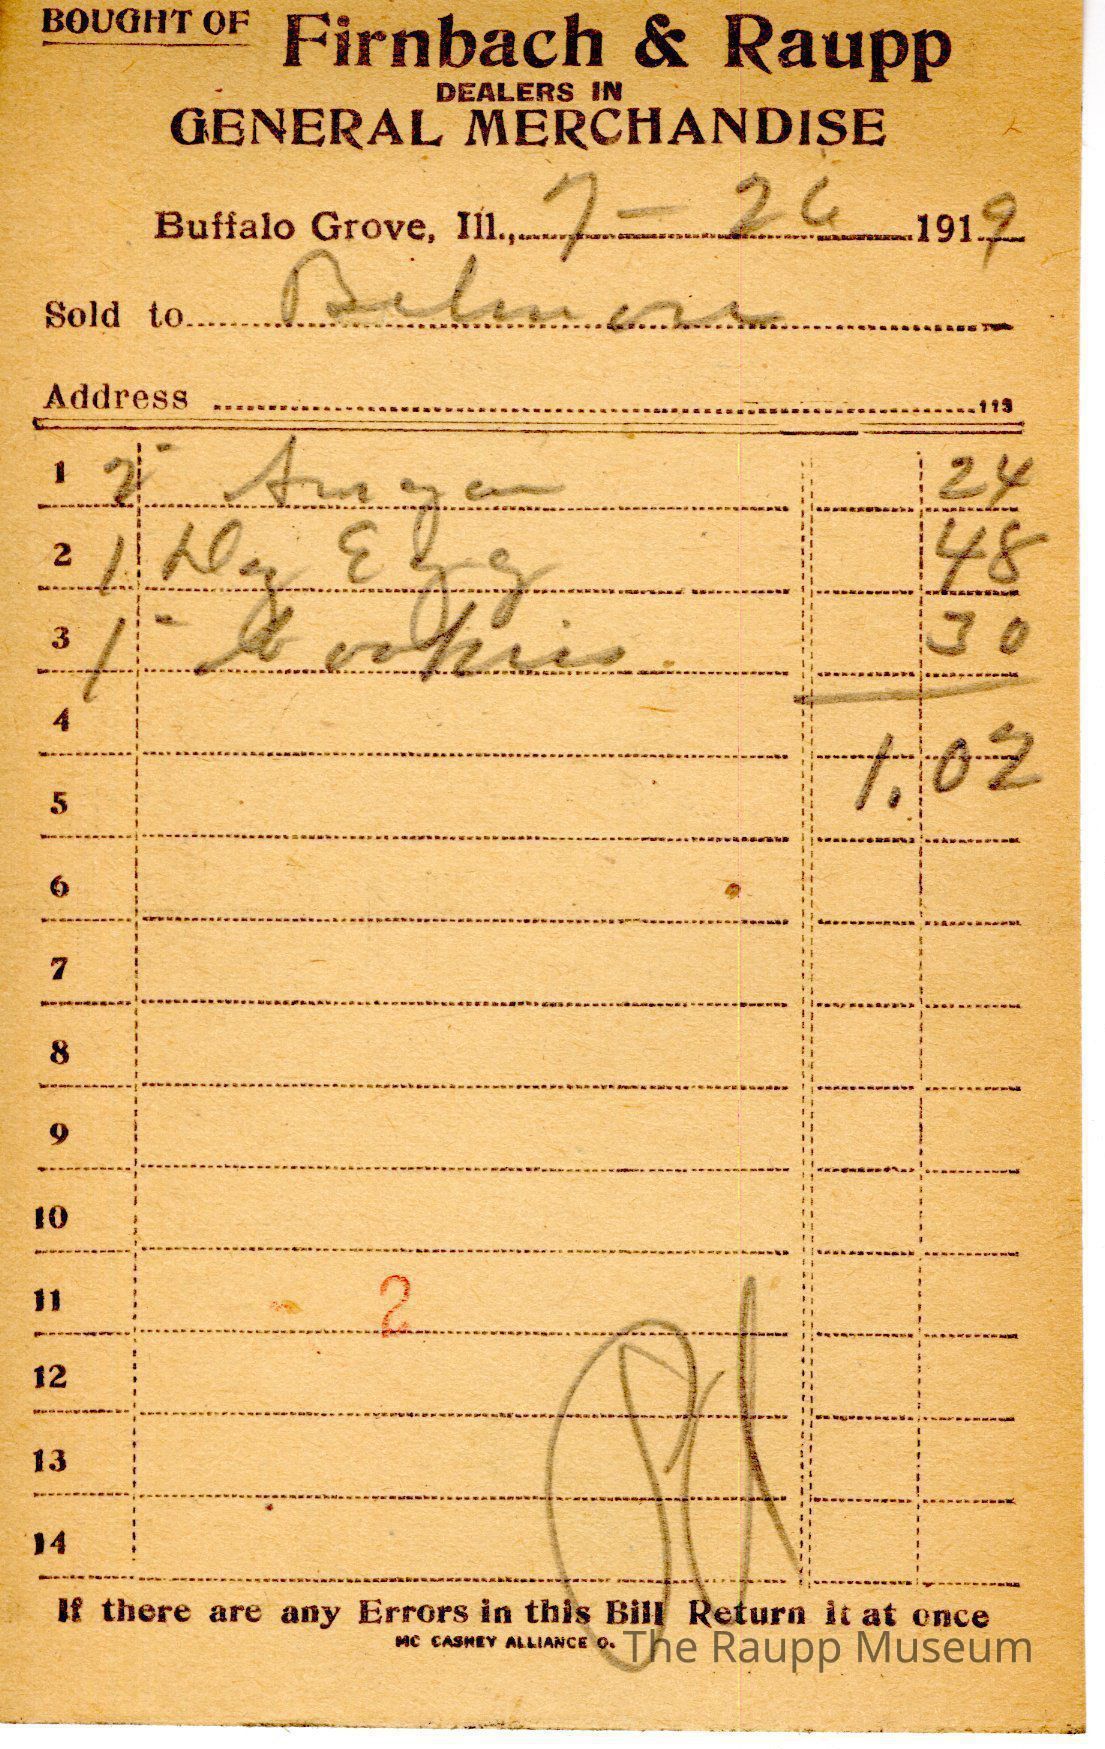 BOUGHT OF Firnbach & Raupp
DEALERS IN
GENERAL MERCHANDISE
Buffalo Grove, Ill., 7 - 26 1919
Sold to
Address 113
1 2 24
2 1 Dz Egg 48
3 1 Cookies 30
4
1.02
5
6
7
8
9
10
11 2
12
13
14
If there are any Errors in this Bill Return it at once
MC CASKEY ALLIANCE O.
The Raupp Museum